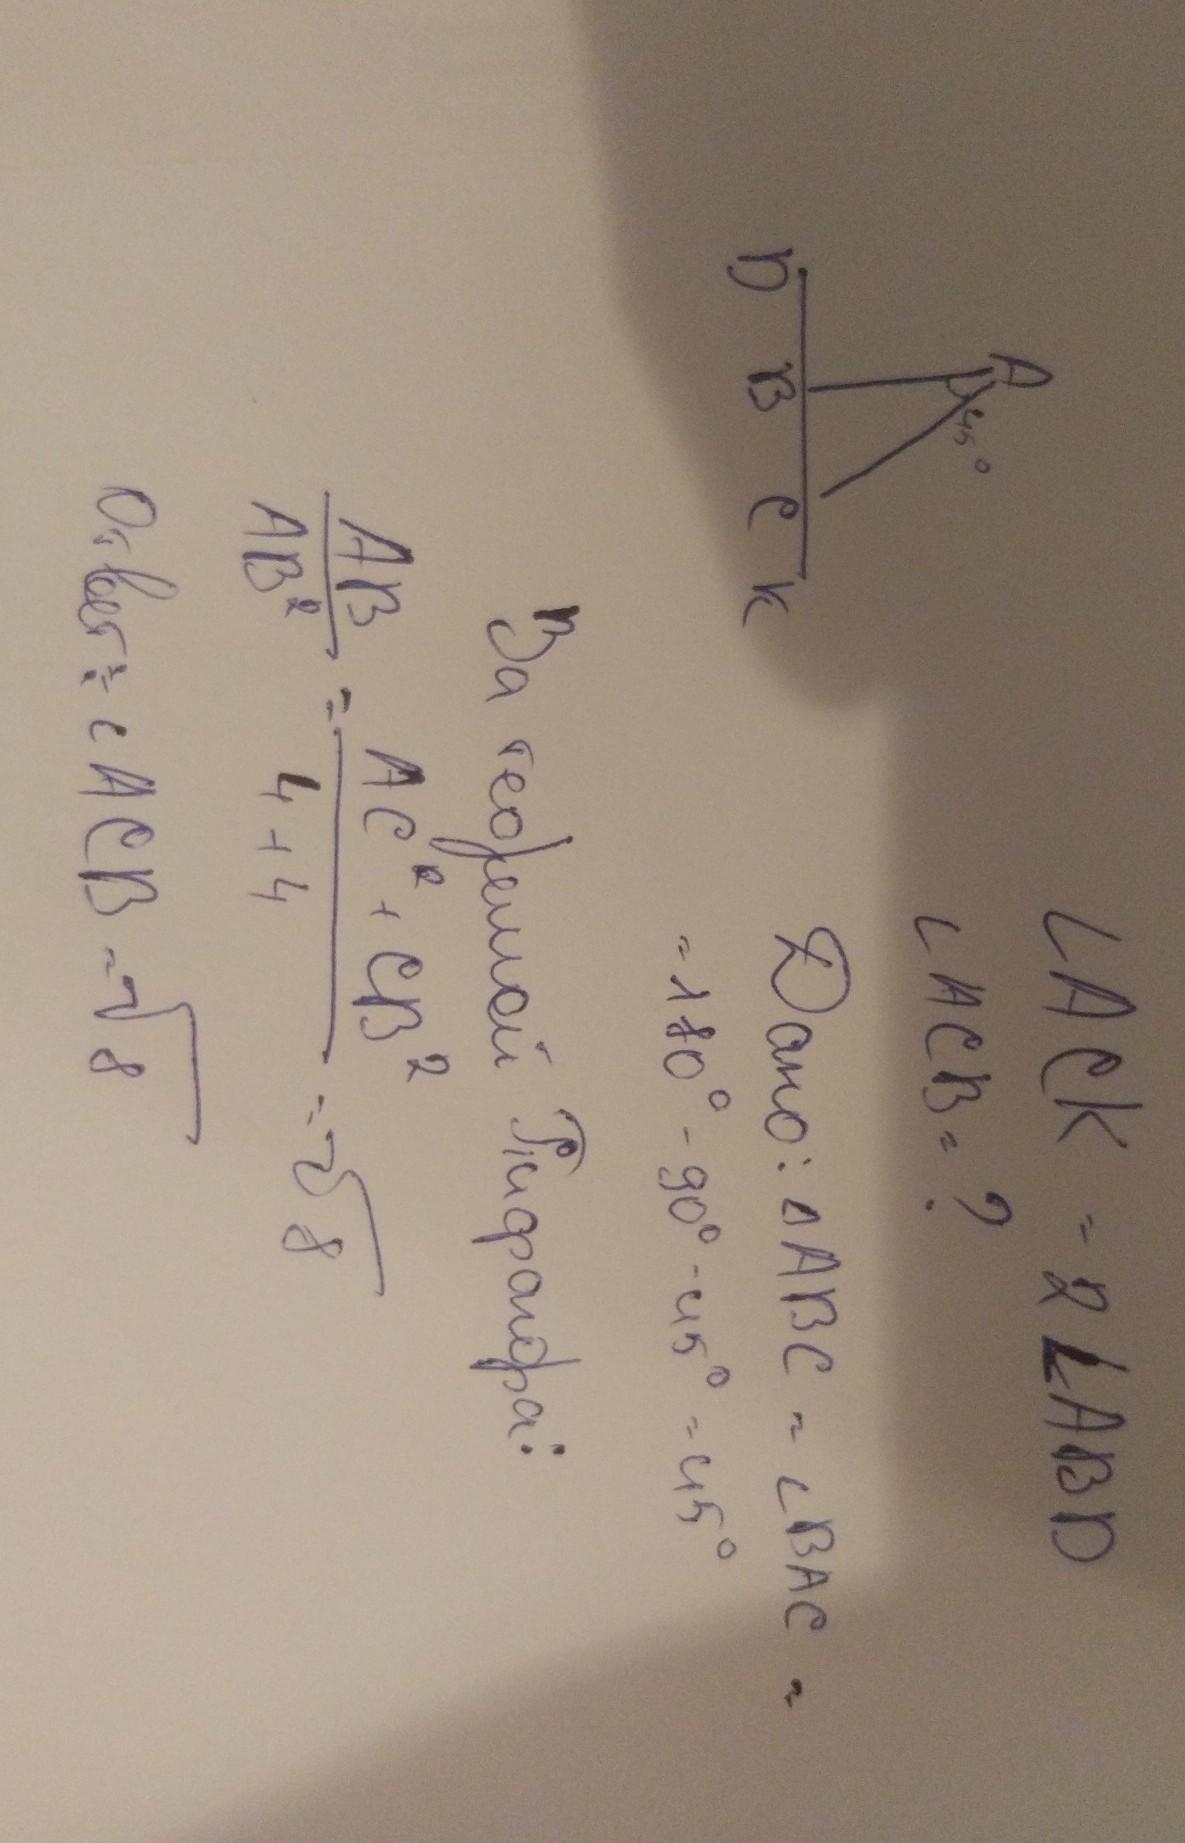 ∠ACK = 2∠ABD
∠ACB = ?
A
45°
D B C K
Дано: △ABC = ∠BAC =
= 180° - 90° - 45° = 45°
За теоремой Пифагора:
AB = AC² + CB²
AB² 4 + 4 = √8
Ответ: ∠ACB = √8